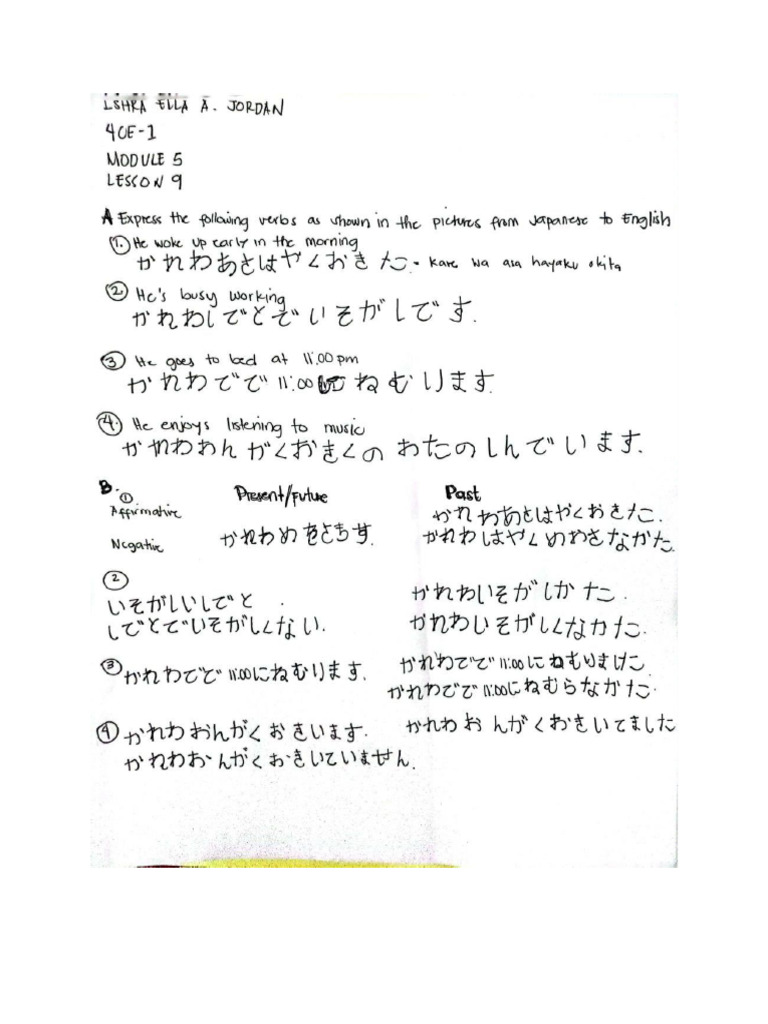 ISHRA ELLA A. JORDAN
4CE-1
MODULE 5
LESCON 9
A Express the following verbs as shown in the pictures from Japanese to English
1. He woke up early in the morning
かれわあさはやくおきた - kare wa asa hayaku okita
2 He's busy working
かれわしでとでいそがしです.
3 He goes to bed at 11:00 pm
かれわでで 11:00 に ねむります.
4. He enjoys listening to music
かれわおんがくおきくのわたのしんでいます.
B. Present/future Past
① Affirmative かれわあさはやくおきた.
Negative かれわめをさちす. かれわはやくめわさなかた.
2
いそがしいしでと. かれわいそがしかた.
しでとでいそがしくない. かれわいそがしくなかた.
3 かれわでで 11:00にねむります. かれわでで 11:00にねむりました
かれわでで 11:00にねむらなかた.
4 かれわおんがくおきいます. かれわおんがくおきいてました
かれわおんがくおきいていません.